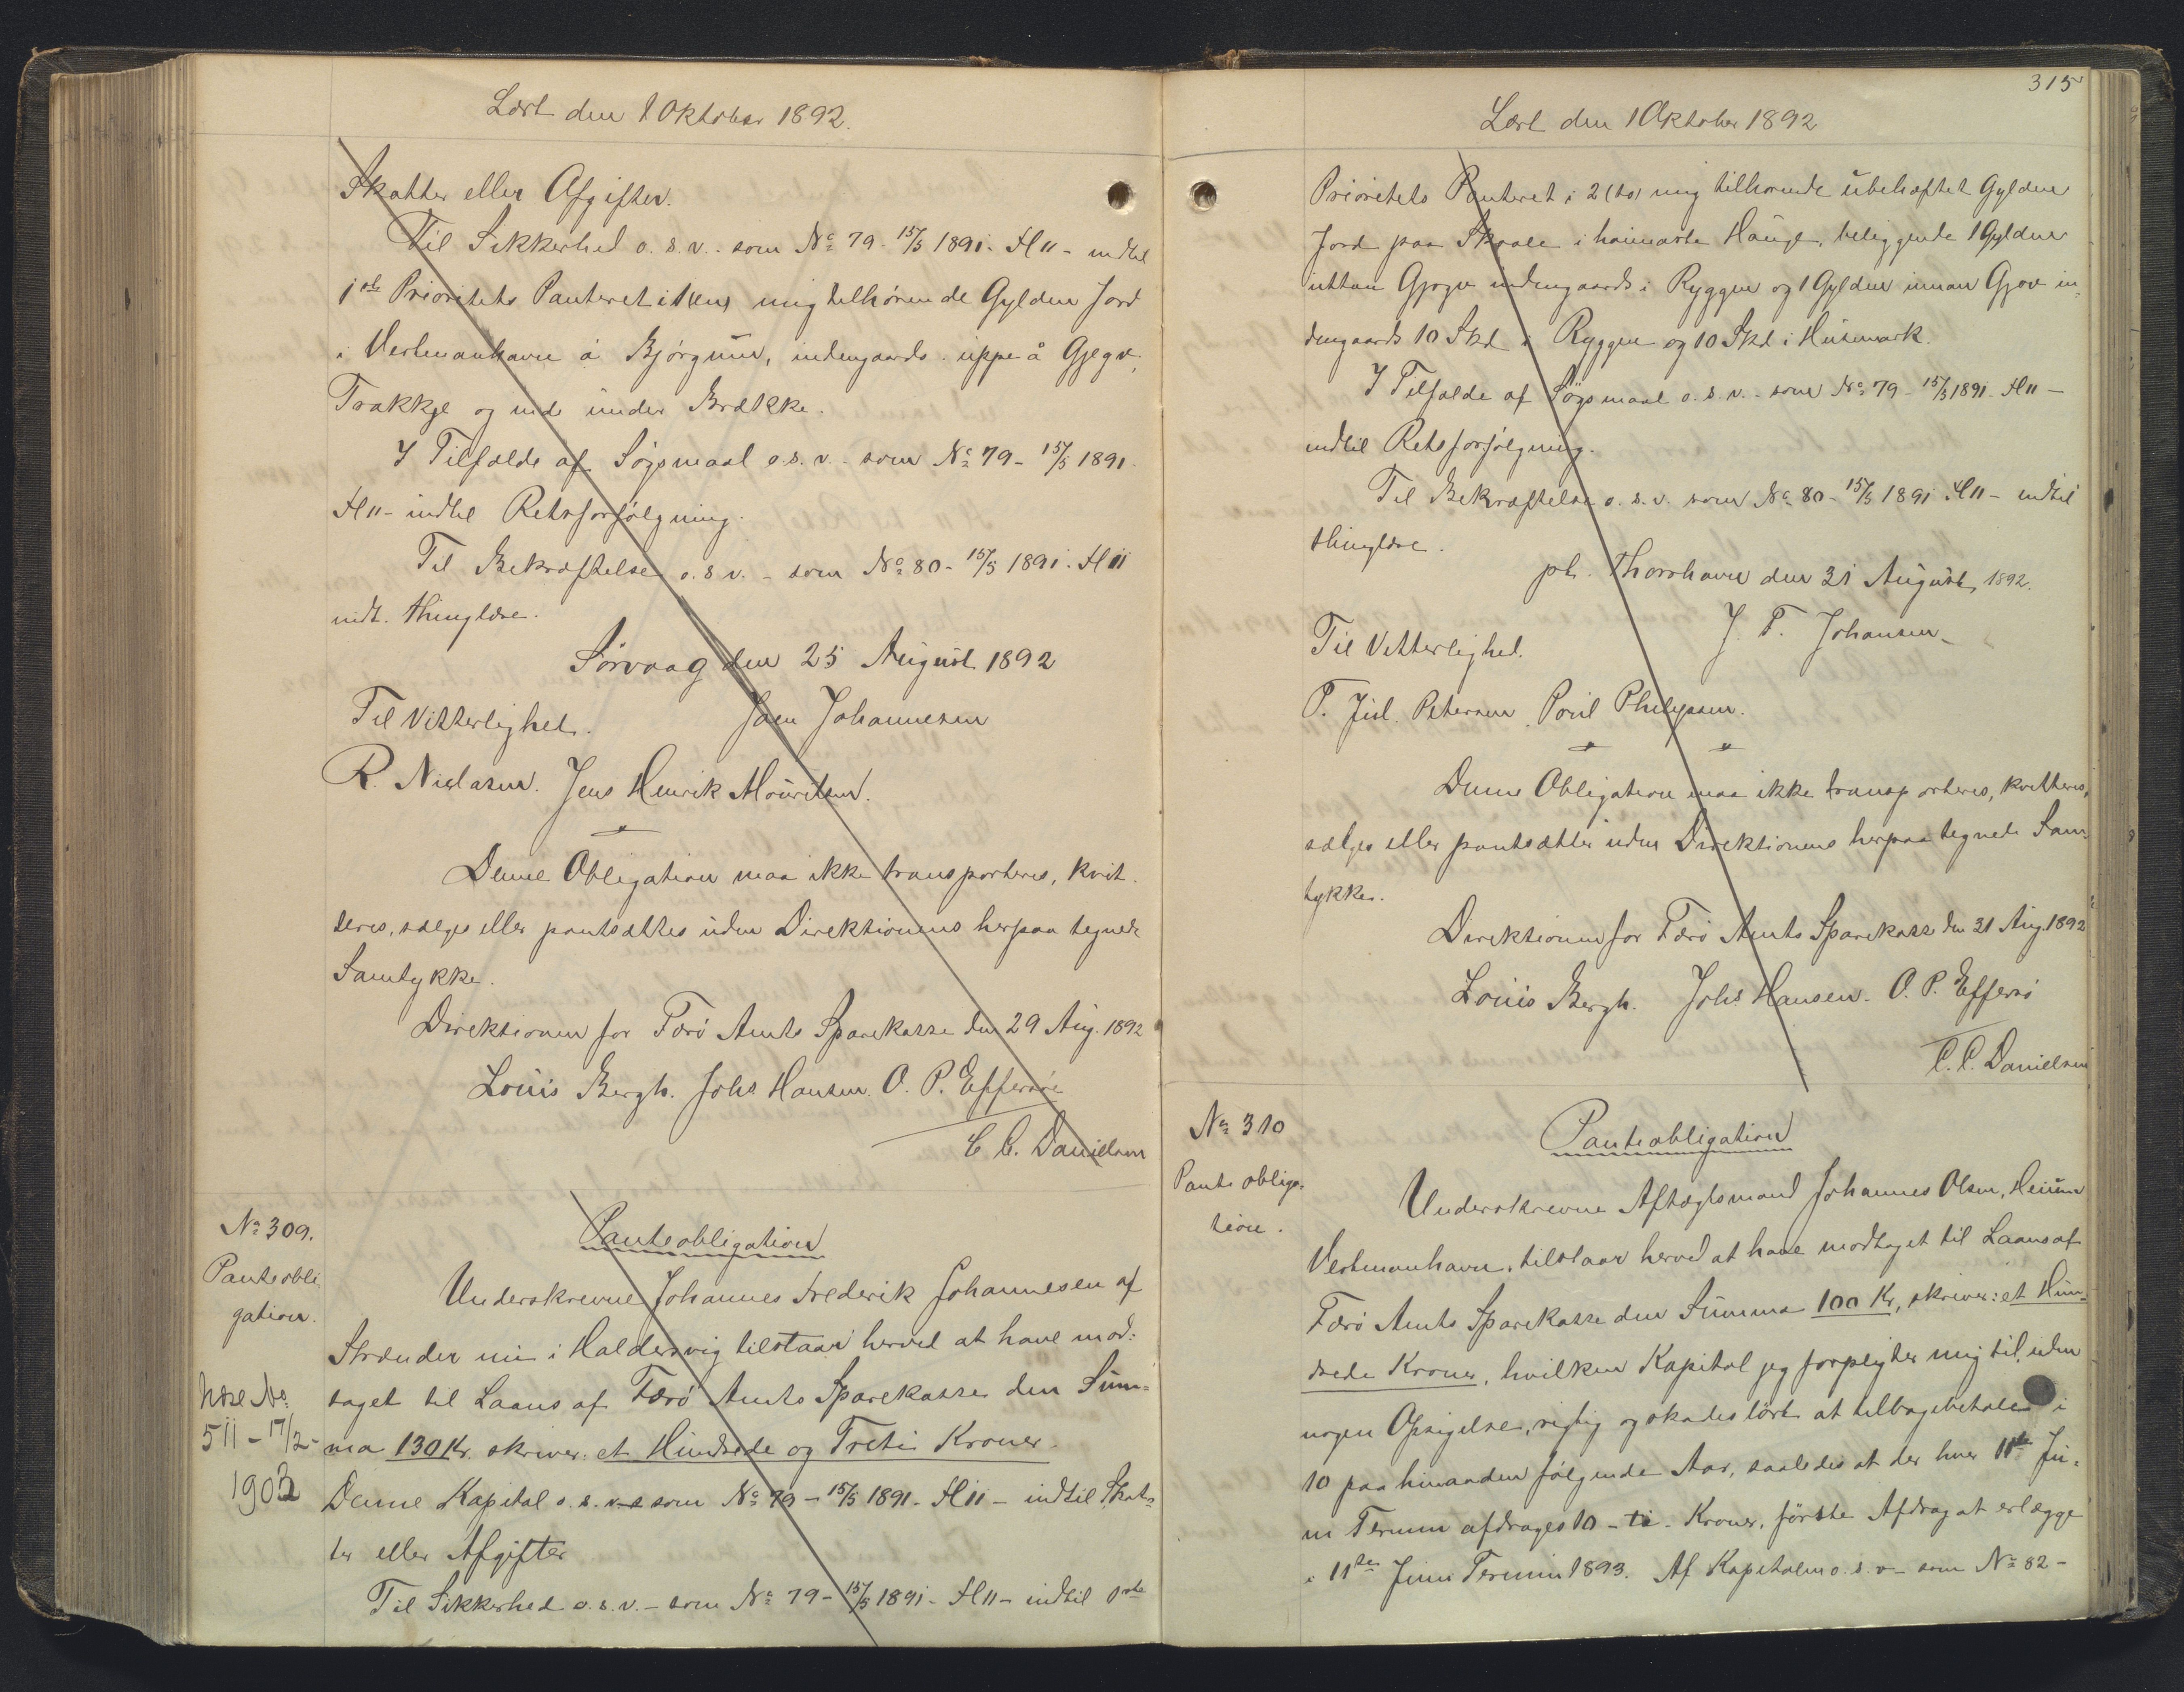 Læst den 1 Oktober 1892.
Skatter eller Afgifter.
Til Sikkerhed o. s. v. - som No 79 - 15/5 1891. H 11 - indtil
1ste Prioritets Panteret i 1 (en) mig tilhørende Gylden Jord
i Vestmanhavn á Bjørgum, indengaards. uppe á Gjegv,
Trakkje og inde under Brække.
I Tilfælde af Søgsmaal o. s. v. - som No 79 - 15/5 1891.
H 11 - indtil Retsforfølgning.
Til Bekræftelse o. s. v. - som No 80 - 15/5 1891. H 11
indt. thinglæse.
Sørvaag den 25 August 1892
Til Vitterlighed. Joen Johannesen
R. Niclasen. Jens Henrik Mouritsen.
Denne Obligation maa ikke transporteres, kvit-
teres, sælges eller pantsættes uden Direktionens herpaa tegnede
Samtykke.
Direktionen for Færø Amts Sparekasse den 29 Aug. 1892
Louis Bergh. Johs Hansen. O. P. Effersøe
C. C. Danielsen
No 309.
Panteobli
gation.
Panteobligation
Underskrevne Johannes Frederik Johannesen af
Strænder nu i Haldersvig tilstaar herved at have mod-
taget til Laans af Færø Amts Sparekasse den Sum-
ma 130 Kr. skriver: et Hundrede og Treti Kroner.
511 - 17/2 -
1903
Denne Kapital o. s. v. som No 79 - 15/5 1891. H 11 - indtil Skat-
ter eller Afgifter
Til Sikkerhed o. s. v. - som No 79 - 15/5 1891 - H 11 - indtil 1ste
315
Læst den 1 Oktober 1892
Prioritets Panteret i 2 (to) mig tilhørende ubehæftet Gylden
Jord paa Skaale i heimasta Hauge, beliggende 1 Gylden
uttan Gjogv indengaards i Ryggen og 1 Gylden innan Gjov in-
dengaards 10 Skd i Ryggen og 10 Skd i Husmark.
I Tilfælde af Søgsmaal o. s. v. - som No 79 - 15/5 1891. H 11 -
indtil Retsforfølgning.
Til Bekræftelse o. s. v. som No 80 - 15/5 1891 H 11 - indtil
thinglæse.
pt. Thorshavn den 31 August 1892.
Til Vitterlighed. J. P. Johansen
P. Petersen Poul Philipsen.
Denne Obligation maa ikke transporteres, kvitteres,
sælges eller pantsættes uden Direktionens herpaa tegnede Sam-
tykke.
Direktionen for Færø Amts Sparekasse den 31 Aug. 1892
Louis Bergh. Johs Hansen. O. P. Effersø
C. C. Danielsen
No 310
Panteobliga-
tion.
Pantobligation
Underskrevne Aftægtsmand Johannes Olsen, Heium
Vestmanhavn, tilstaar herved at have modtaget til Laans af
Færø Amts Sparekasse den Summa 100 Kr., skriver: et Hun-
drede Kroner, hvilken Kapital jeg forpligter mig til, uden
nogen Opsigelse, rigtig og skadesløst at tilbagebetale i
10 paa hinanden følgende Aar, saaledes at der hver 11te Ju-
ni Termin afdrages 10 - ti - Kroner, første Afdrag at erlægge
i 11te Juni Termin 1893. Af Kapitalen o. s. v. - som No 82 -